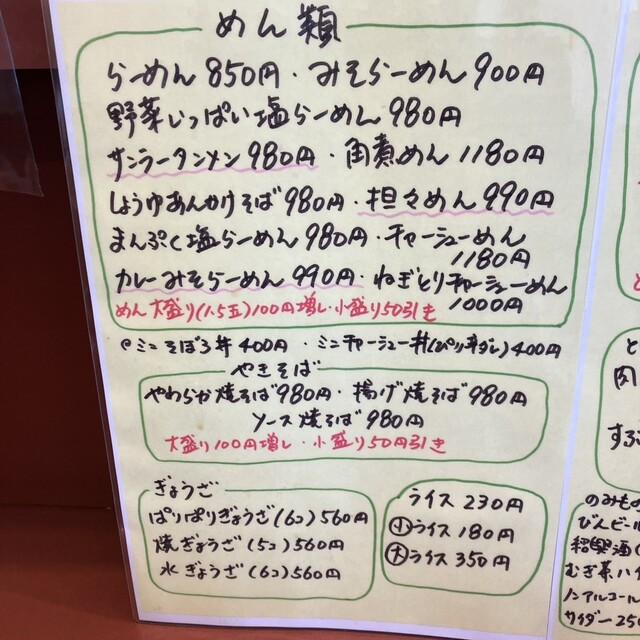 めん類
らーめん 850円・みそらーめん 900円
野菜いっぱい塩らーめん 980円
サンラータンメン 980円・角煮めん 1180円
しょうゆあんかけそば 980円・担々めん 990円
まんぷく塩らーめん 980円・チャーシューめん
1180円
カレーみそらーめん 990円・ねぎとりチャーシューめん
1000円
めん大盛り(1.5玉)100円増し・小盛り50引き
ミニそぼろ丼 400円・ミニチャーシュー丼(ぴり辛ダレ)400円
やきそば
やわらか焼そば 980円・揚げ焼そば 980円
ソース焼そば 980円
大盛り100円増し・小盛り50円引き
ぎょうざ
ぱりぱりぎょうざ(6コ)560円
焼ぎょうざ(5コ)560円
水ぎょうざ(6コ)560円
ライス 230円
小ライス 180円
大ライス 350円
と
肉
する
のみもの
びんビール
紹興酒(
むぎ茶ハイ
ノンアルコール
サイダー 250